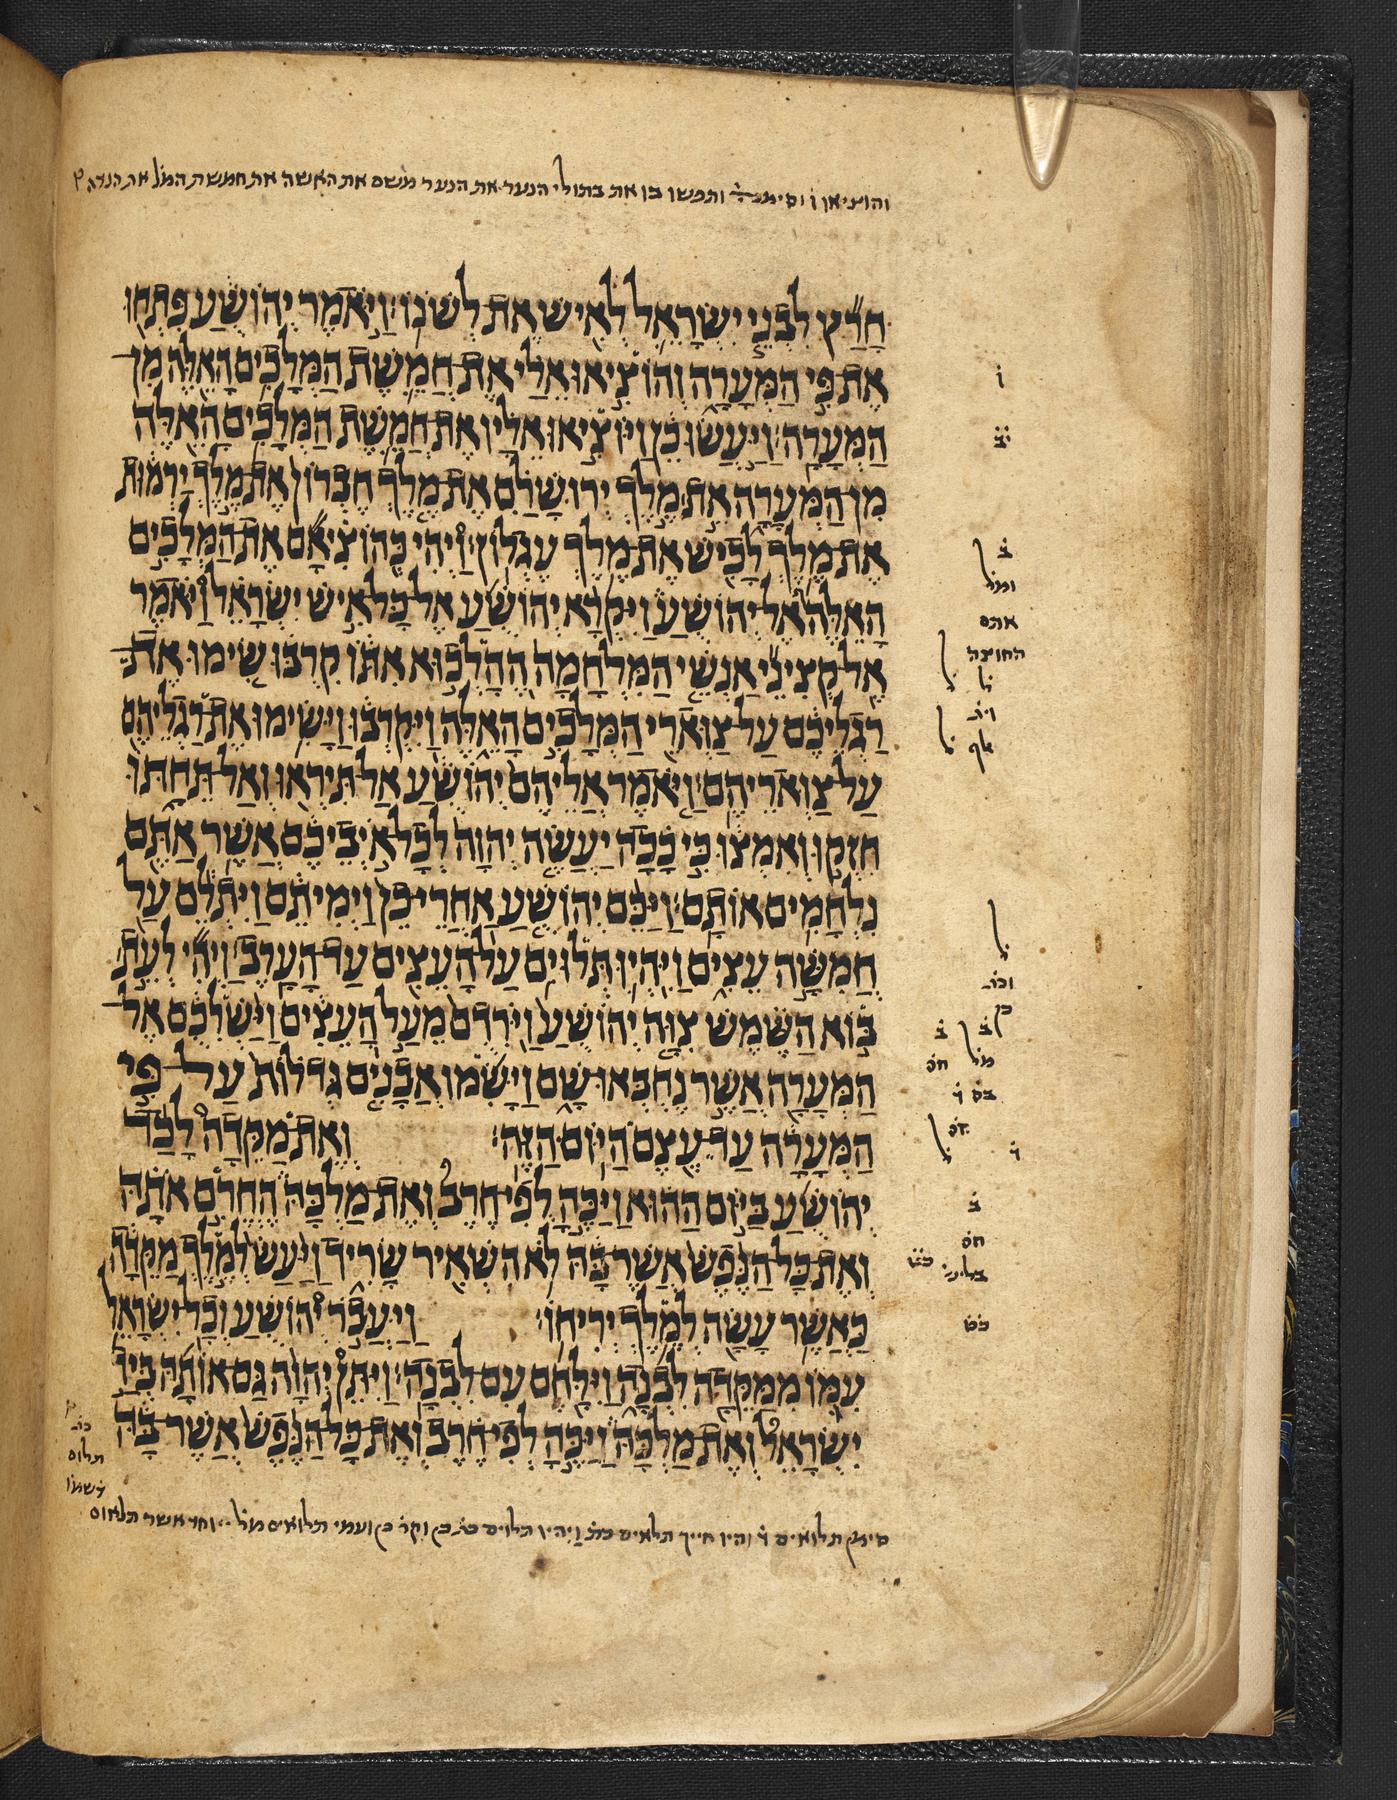 והוציאו ו וסימנה ותפשו בו את בתולי הנער את הנער משם את האשה את חמשת המל את הנדה
חָרַץ לִבְנֵי יִשְׂרָאֵל לְאִישׁ אֶת לְשֹׁנוֹ׃ וַיֹּאמֶר יְהוֹשֻׁעַ פִּתְחוּ
אֶת פִּי הַמְּעָרָה וְהוֹצִיאוּ אֵלַי אֶת חֲמֵשֶׁת הַמְּלָכִים הָאֵלֶּה מִן
הַמְּעָרָה׃ וַיַּעֲשׂוּ כֵן וַיּוֹצִיאוּ אֵלָיו אֶת חֲמֵשֶׁת הַמְּלָכִים הָאֵלֶּה
מִן הַמְּעָרָה אֵת מֶלֶךְ יְרוּשָׁלִַם אֶת מֶלֶךְ חֶבְרוֹן אֶת מֶלֶךְ יַרְמוּת
אֶת מֶלֶךְ לָכִישׁ אֶת מֶלֶךְ עֶגְלוֹן׃ וַיְהִי כְּהוֹצִיאָם אֶת הַמְּלָכִים
הָאֵלֶּה אֶל יְהוֹשֻׁעַ וַיִּקְרָא יְהוֹשֻׁעַ אֶל כָּל אִישׁ יִשְׂרָאֵל וַיֹּאמֶר
אֶל קְצִינֵי אַנְשֵׁי הַמִּלְחָמָה הֶהָלְכוּא אִתּוֹ קִרְבוּ שִׂימוּ אֶת
רַגְלֵיכֶם עַל צַוְּארֵי הַמְּלָכִים הָאֵלֶּה וַיִּקְרְבוּ וַיָּשִׂימוּ אֶת רַגְלֵיהֶם
עַל צַוְּארֵיהֶם׃ וַיֹּאמֶר אֲלֵיהֶם יְהוֹשֻׁעַ אַל תִּירְאוּ וְאַל תֵּחָתּוּ
חִזְקוּ וְאִמְצוּ כִּי כָכָה יַעֲשֶׂה יְהוָה לְכָל אֹיְבֵיכֶם אֲשֶׁר אַתֶּם
נִלְחָמִים אוֹתָם׃ וַיַּכֵּם יְהוֹשֻׁעַ אַחֲרֵי כֵן וַיְמִיתֵם וַיִּתְלֵם עַל
חֲמִשָּׁה עֵצִים וַיִּהְיוּ תְּלוּיִם עַל הָעֵצִים עַד הָעָרֶב׃ וַיְהִי לְעֵת
בּוֹא הַשֶּׁמֶשׁ צִוָּה יְהוֹשֻׁעַ וַיֹּרִידֻם מֵעַל הָעֵצִים וַיַּשְׁלִכֻם אֶל
הַמְּעָרָה אֲשֶׁר נֶחְבְּאוּ שָׁם וַיָּשִׂמוּ אֲבָנִים גְּדֹלוֹת עַל פִּי
הַמְּעָרָה עַד עֶצֶם הַיּוֹם הַזֶּה׃ וְאֶת מַקֵּדָה לָכַד
יְהוֹשֻׁעַ בַּיּוֹם הַהוּא וַיַּכֶּהָ לְפִי חֶרֶב וְאֶת מַלְכָּהּ הֶחֱרִם אֹתָהּ
וְאֶת כָּל הַנֶּפֶשׁ אֲשֶׁר בָּהּ לֹא הִשְׁאִיר שָׂרִיד וַיַּעַשׂ לְמֶלֶךְ מַקֵּדָה
כַּאֲשֶׁר עָשָׂה לְמֶלֶךְ יְרִיחוֹ׃ וַיַּעֲבֹר יְהוֹשֻׁעַ וְכָל יִשְׂרָאֵל
עִמּוֹ מִמַּקֵּדָה לִבְנָה וַיִּלָּחֶם עִם לִבְנָה׃ וַיִּתֵּן יְהוָה גַּם אוֹתָהּ בְּיַד
יִשְׂרָאֵל וְאֶת מַלְכָּהּ וַיַּכֶּהָ לְפִי חֶרֶב וְאֶת כָּל הַנֶּפֶשׁ אֲשֶׁר בָּהּ
ו
יב
ב
ומל
אתם
החוצה
ול
וית
אף
וכת
כן
ב ב
מל חס
בס ד
ד
ב
חס
בליש
כת
תלוים
תלואים ד והיו חייך תלאים כת ויהיו תלוים כת כן וקר כן ועמי תלואים מל וחד אשר תלאום